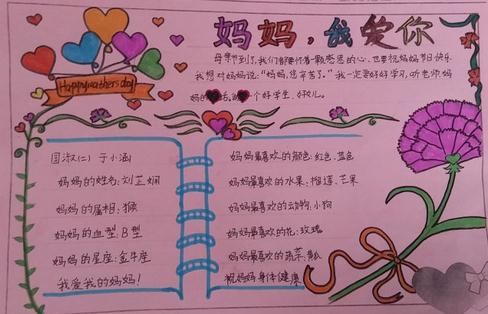 妈妈，我爱你
Happy mothers day
母亲节到了，我们都要怀着一颗感恩的心，也要祝妈妈节日快乐
我想对妈妈说：“妈妈，您辛苦了。”我一定要好好学习，听老师妈
妈的话，个好学生、好女儿。
国淑(二) 于小涵
妈妈的姓名：刘芷娴
妈妈的属相：猴
妈妈的血型：B型
妈妈的星座：金牛座
我爱我的妈妈！
妈妈最喜欢的颜色：红色、蓝色
妈妈最喜欢的水果：榴莲、芒果
妈妈最喜欢的动物：小狗
妈妈最喜欢的花：玫瑰
妈妈最喜欢的蔬菜：瓜
祝妈妈身体健康